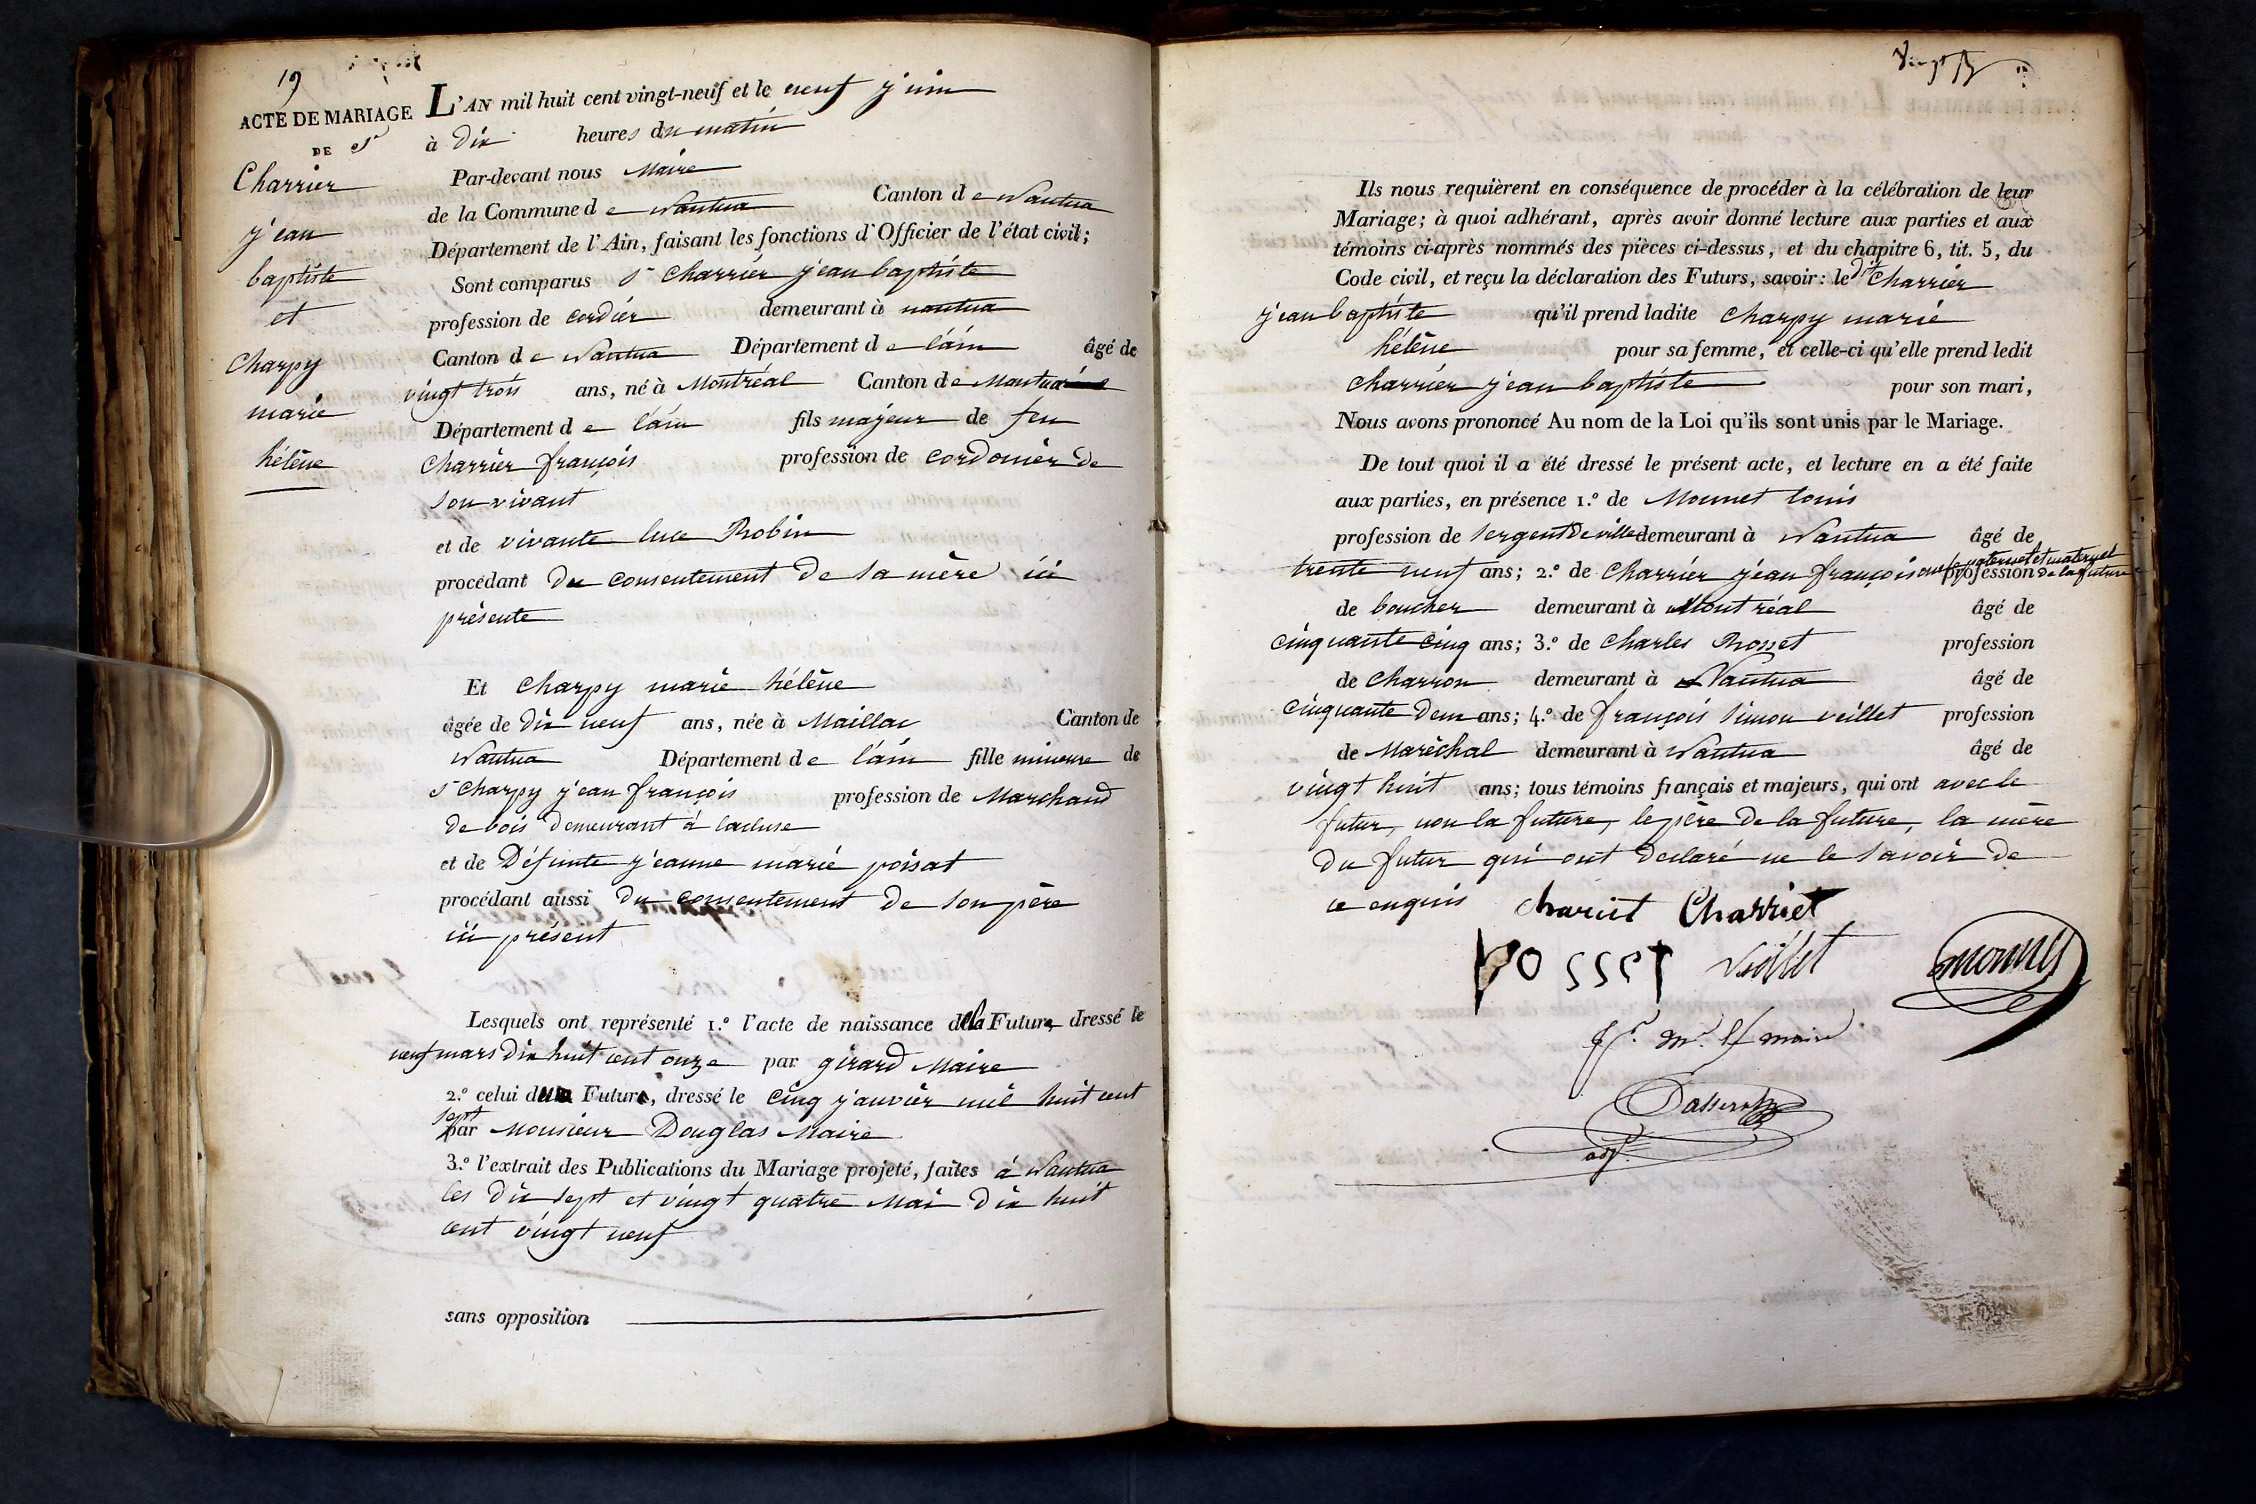 19
ACTE DE MARIAGE
DE Sr
Charrier
jean
baptiste
et
Charpy
marie
hélène
L'AN mil huit cent vingt-neuf et le neuf juin
à dix heures du matin
Par-devant nous Maire
de la Commune de Nantua Canton de Nantua
Département de l'Ain, faisant les fonctions d'Officier de l'état civil;
Sont comparus Sr Charrier jean baptiste
profession de cordier demeurant à nantua
Canton de Nantua Département de l'ain âgé de
vingt trois ans, né à Montréal Canton de
Département de l'ain fils majeur de feu
Charrier françois profession de cordonier de
son vivant
et de vivante luce Robin
procédant du consentement de sa mère ici
présente
Et Charpy marie hélène
âgée de dix neuf ans, née à Maillac Canton de
Nantua Département de l'ain fille mineure de
Sr Charpy jean françois profession de Marchand
de bois demeurant à lacluse
et de Défunte jeanne marie poisat
procédant aussi du consentement de son père
ici présent
Lesquels ont représenté 1.º l'acte de naissance de la Future dressé le
neuf mars dix huit cent onze par girard Maire
2.º celui du Futur, dressé le cinq janvier mil huit cent
sept
par Monsieur Douglas Maire
3.º l'extrait des Publications du Mariage projeté, faites à Nantua
les dix sept et vingt quatre Mai dix huit
cent vingt neuf
sans opposition
Ils nous requièrent en conséquence de procéder à la célébration de leur
Mariage; à quoi adhérant, après avoir donné lecture aux parties et aux
témoins ci-après nommés des pièces ci-dessus, et du chapitre 6, tit. 5, du
Code civil, et reçu la déclaration des Futurs, savoir: le dit Charrier
jean baptiste qu'il prend ladite Charpy marie
hélène pour sa femme, et celle-ci qu'elle prend ledit
Charrier jean baptiste pour son mari,
Nous avons prononcé Au nom de la Loi qu'ils sont unis par le Mariage.
De tout quoi il a été dressé le présent acte, et lecture en a été faite
aux parties, en présence 1.º de Mounet louis
profession de Sergent de ville demeurant à Nantua âgé de
trente neuf ans; 2.º de Charrier jean françois oncle paternel et maternel de la future profession
de boucher demeurant à Montréal âgé de
cinquante cinq ans; 3.º de Charles Rosset profession
de Charron demeurant à Nantua âgé de
cinquante deux ans; 4.º de françois Simon veillet profession
de Maréchal demeurant à Nantua âgé de
vingt huit ans; tous témoins français et majeurs, qui ont avec le
futur, non la future, le père de la future, la mère
du futur qui ont declaré ne le savoir de
ce enquis
Charriet
rosset
mounet
maire
adj.